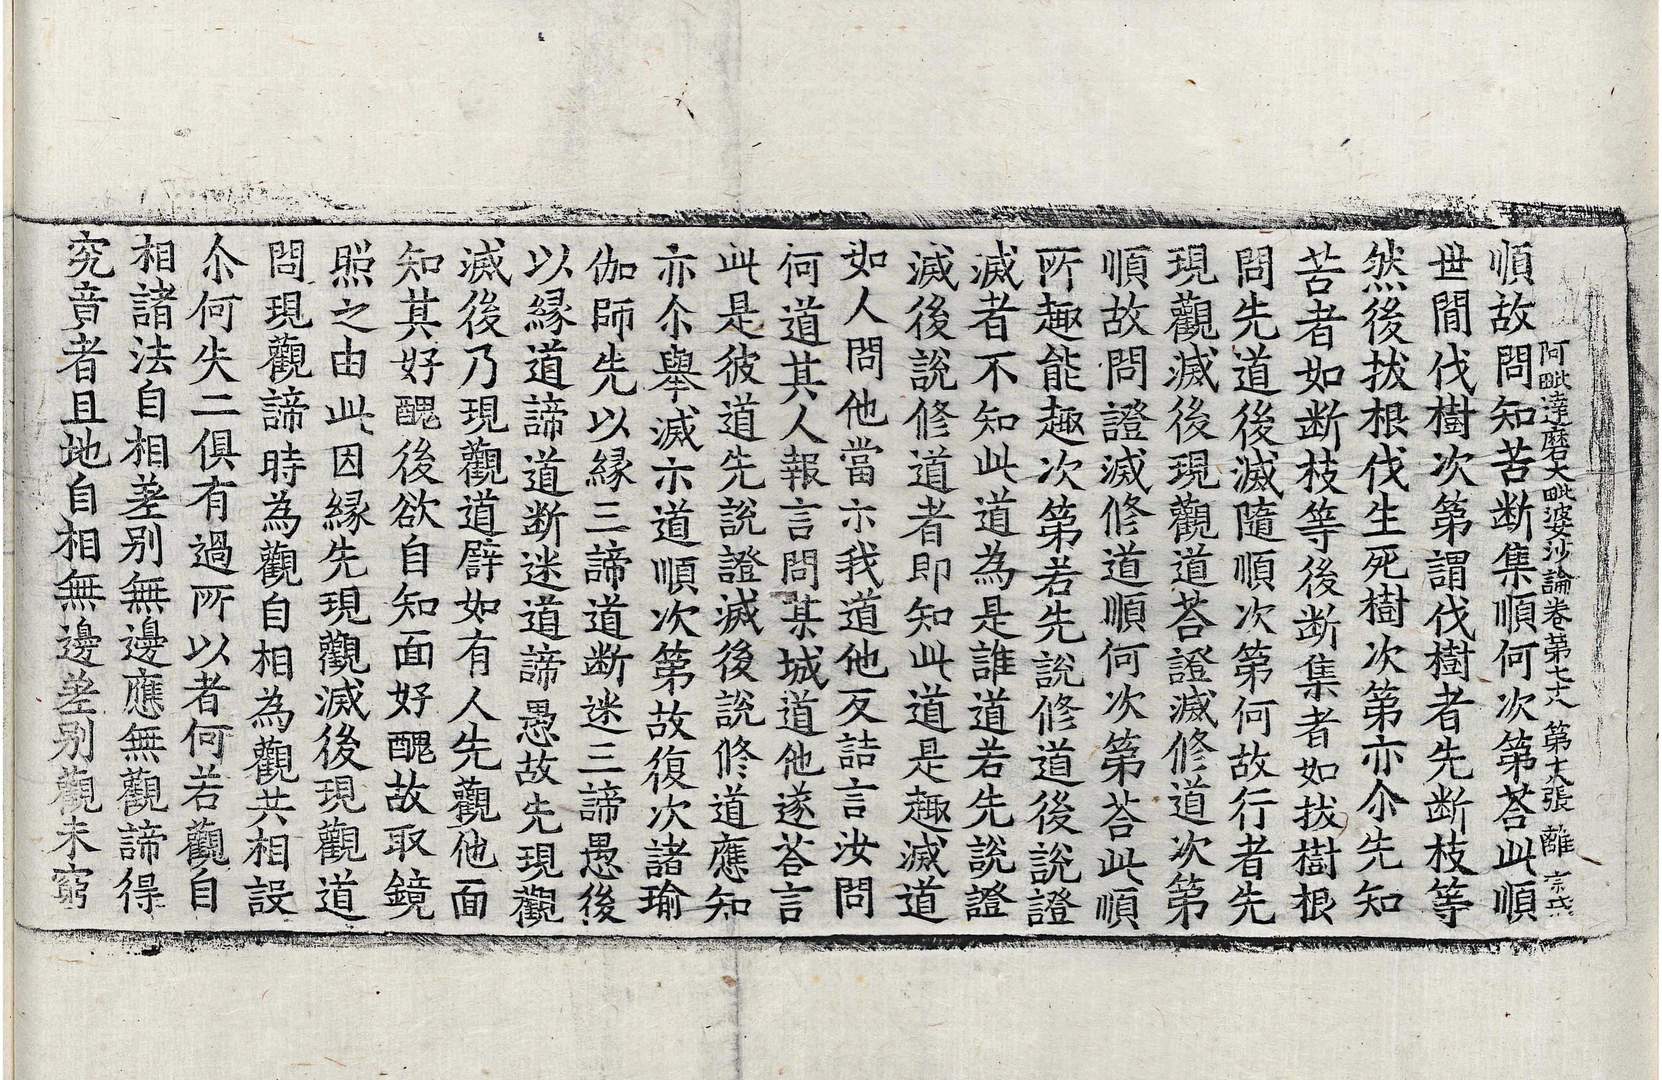 阿毗達磨大毗婆沙論卷第七十八 第十六張 離
順故問知苦断集順何次第荅此順
世間伐樹次第謂伐樹者先断枝等
然後拔根伐生死樹次第亦尒先知
苦者如断枝等後断集者如拔樹根
問先道後滅隨順次第何故行者先
現觀滅後現觀道荅證滅修道次第
順故問證滅修道順何次第荅此順
所趣能趣次第若先說修道後說證
滅者不知此道為是誰道若先說證
滅後說修道者即知此道是趣滅道
如人問他當示我道他反詰言汝問
何道其人報言問某城道他遂荅言
此是彼道先說證滅後說修道應知
亦尒舉滅示道順次第故復次諸瑜
伽師先以縁三諦道断迷三諦愚後
以縁道諦道断迷道諦愚故先現觀
滅後乃現觀道譬如有人先觀他面
知其好醜後欲自知面好醜故取鏡
照之由此因縁先現觀滅後現觀道
問現觀諦時為觀自相為觀共相設
尒何失二俱有過所以者何若觀自
相諸法自相差別無邊應無觀諦得
究竟者且地自相無邊差別觀未窮